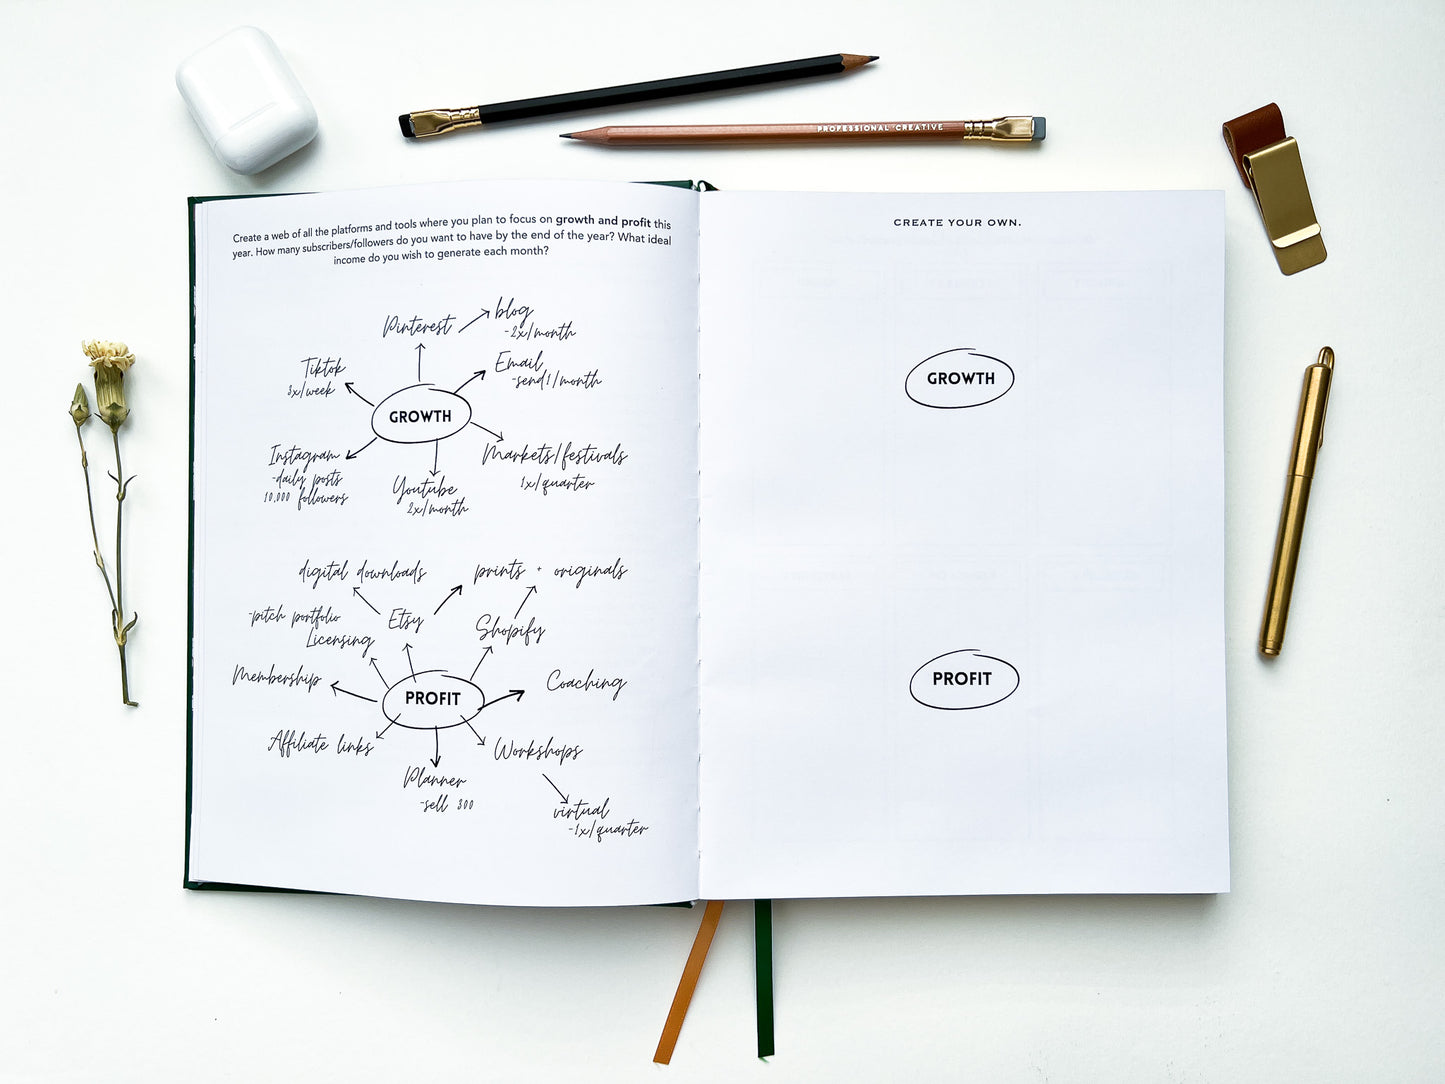 PROFESSIONAL CREATIVE
Create a web of all the platforms and tools where you plan to focus on growth and profit this
year. How many subscribers/followers do you want to have by the end of the year? What ideal
income do you wish to generate each month?
Pinterest
blog
-2x/month
Tiktok
3x/week
Email
-send 1/month
GROWTH
Instagram
-daily posts
10,000 followers
Markets/festivals
1x/quarter
Youtube
2x/month
digital downloads
prints + originals
-pitch portfolio
Licensing
Etsy
Shopify
Membership
Coaching
PROFIT
Affiliate links
Workshops
Planner
-sell 300
virtual
-1x/quarter
CREATE YOUR OWN.
GROWTH
PROFIT